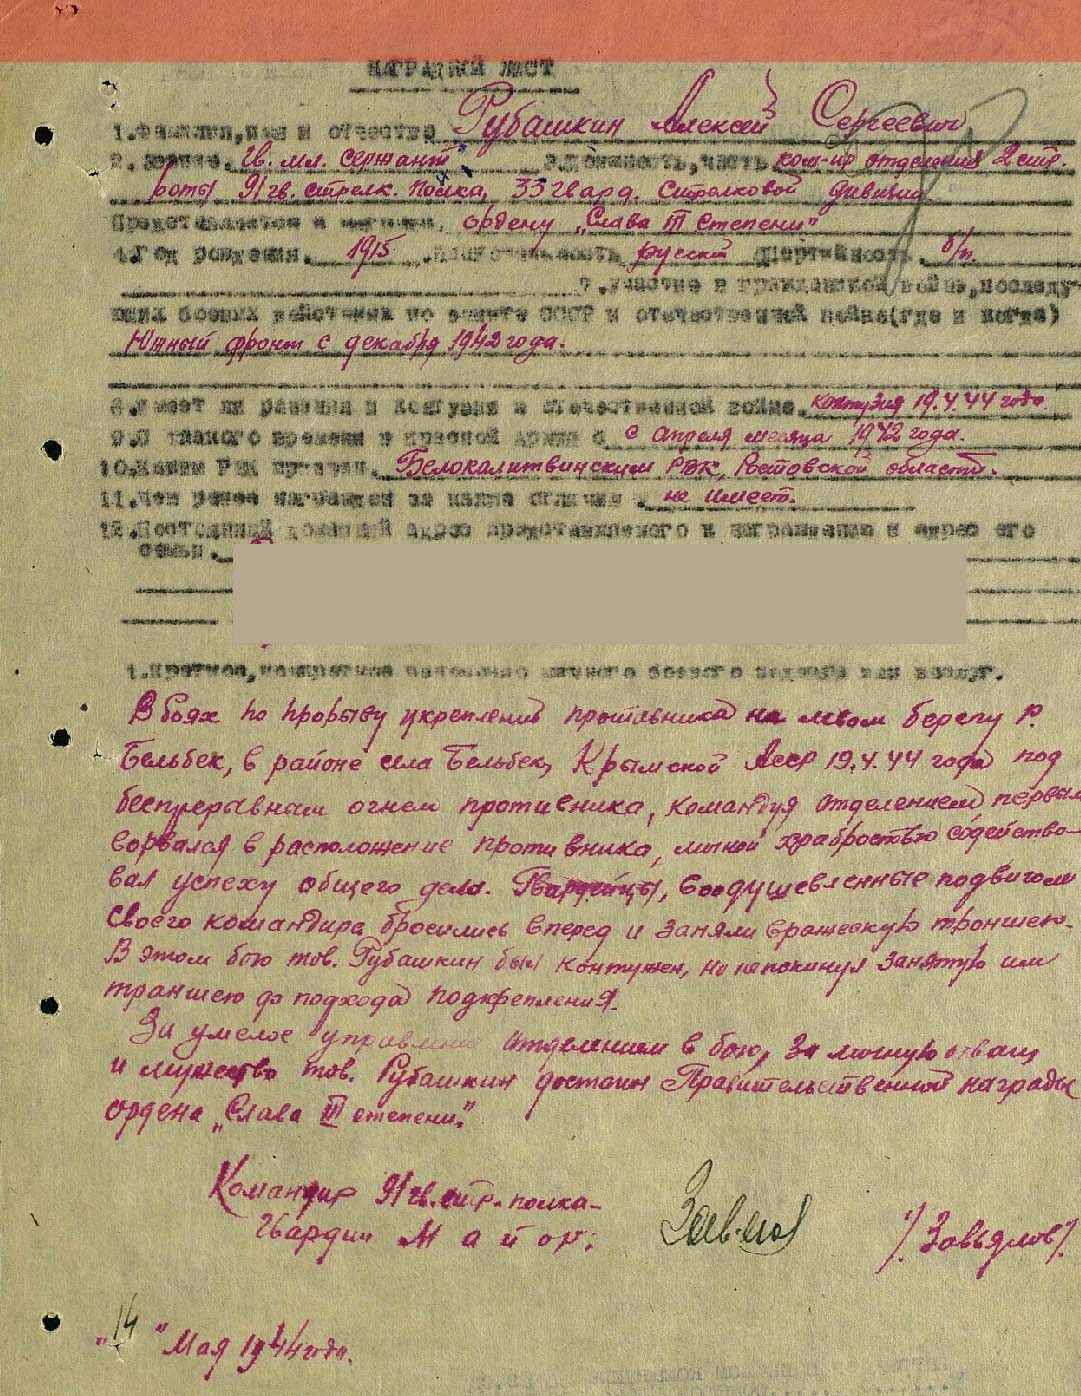 НАГРАДНОЙ ЛИСТ
1.Фамилия,имя и отчество Рубашкин Алексей Сергеевич
2. Звание. Гв. мл. сержант 3.Должность,часть ком-ир отделения 2 стр.
роты 91 гв. стрелк. полка, 33 гвард. стрелковой дивизии
Представляется к ордену „Слава III степени"
4.Год рождения. 1915 .Национальность русский Партийность б/п.
7.Участие в гражданской войне,последу-
ющих боевых действиях по защите СССР и отечественной войне(где и когда)
Южный фронт с декабря 1942 года.
8.Имеет ли ранения и контузии в отечественной войне. контузия 19.4.44 года
9.С какого времени в красной армии с с апреля месяца 1942 года.
10.Каким РВК призван. Белокалитвинским РВК, Ростовской области.
11.Чем ранее награжден за какие отличия. не имеет.
12.Постоянный домашний адрес представляемого к награждению и адрес его
семьи.
1.Краткое,конкретное изложение личного боевого подвига или заслуг.
В боях по прорыву укреплений противника на левом берегу р.
Бельбек, в районе села Бельбек, Крымской Асср 19.4.44 года под
беспрерывным огнем противника, командуя отделением первым
ворвался в расположение противника, личной храбростью содейство-
вал успеху общего дела. Гвардейцы, воодушевленные подвигом
своего командира бросились вперед и заняли вражескую траншею.
В этом бою тов. Рубашкин был контужен, но не покинул занятую им
траншею до подхода подкрепления.
За умелое управление отделением в бою, за личную отвагу
и мужество тов. Рубашкин достоин Правительственной награды
ордена „Слава III степени".
Командир 91 гв. стр. полка-
Гвардии Майор:
/Завьялов/.
„14" Мая 1944 года.